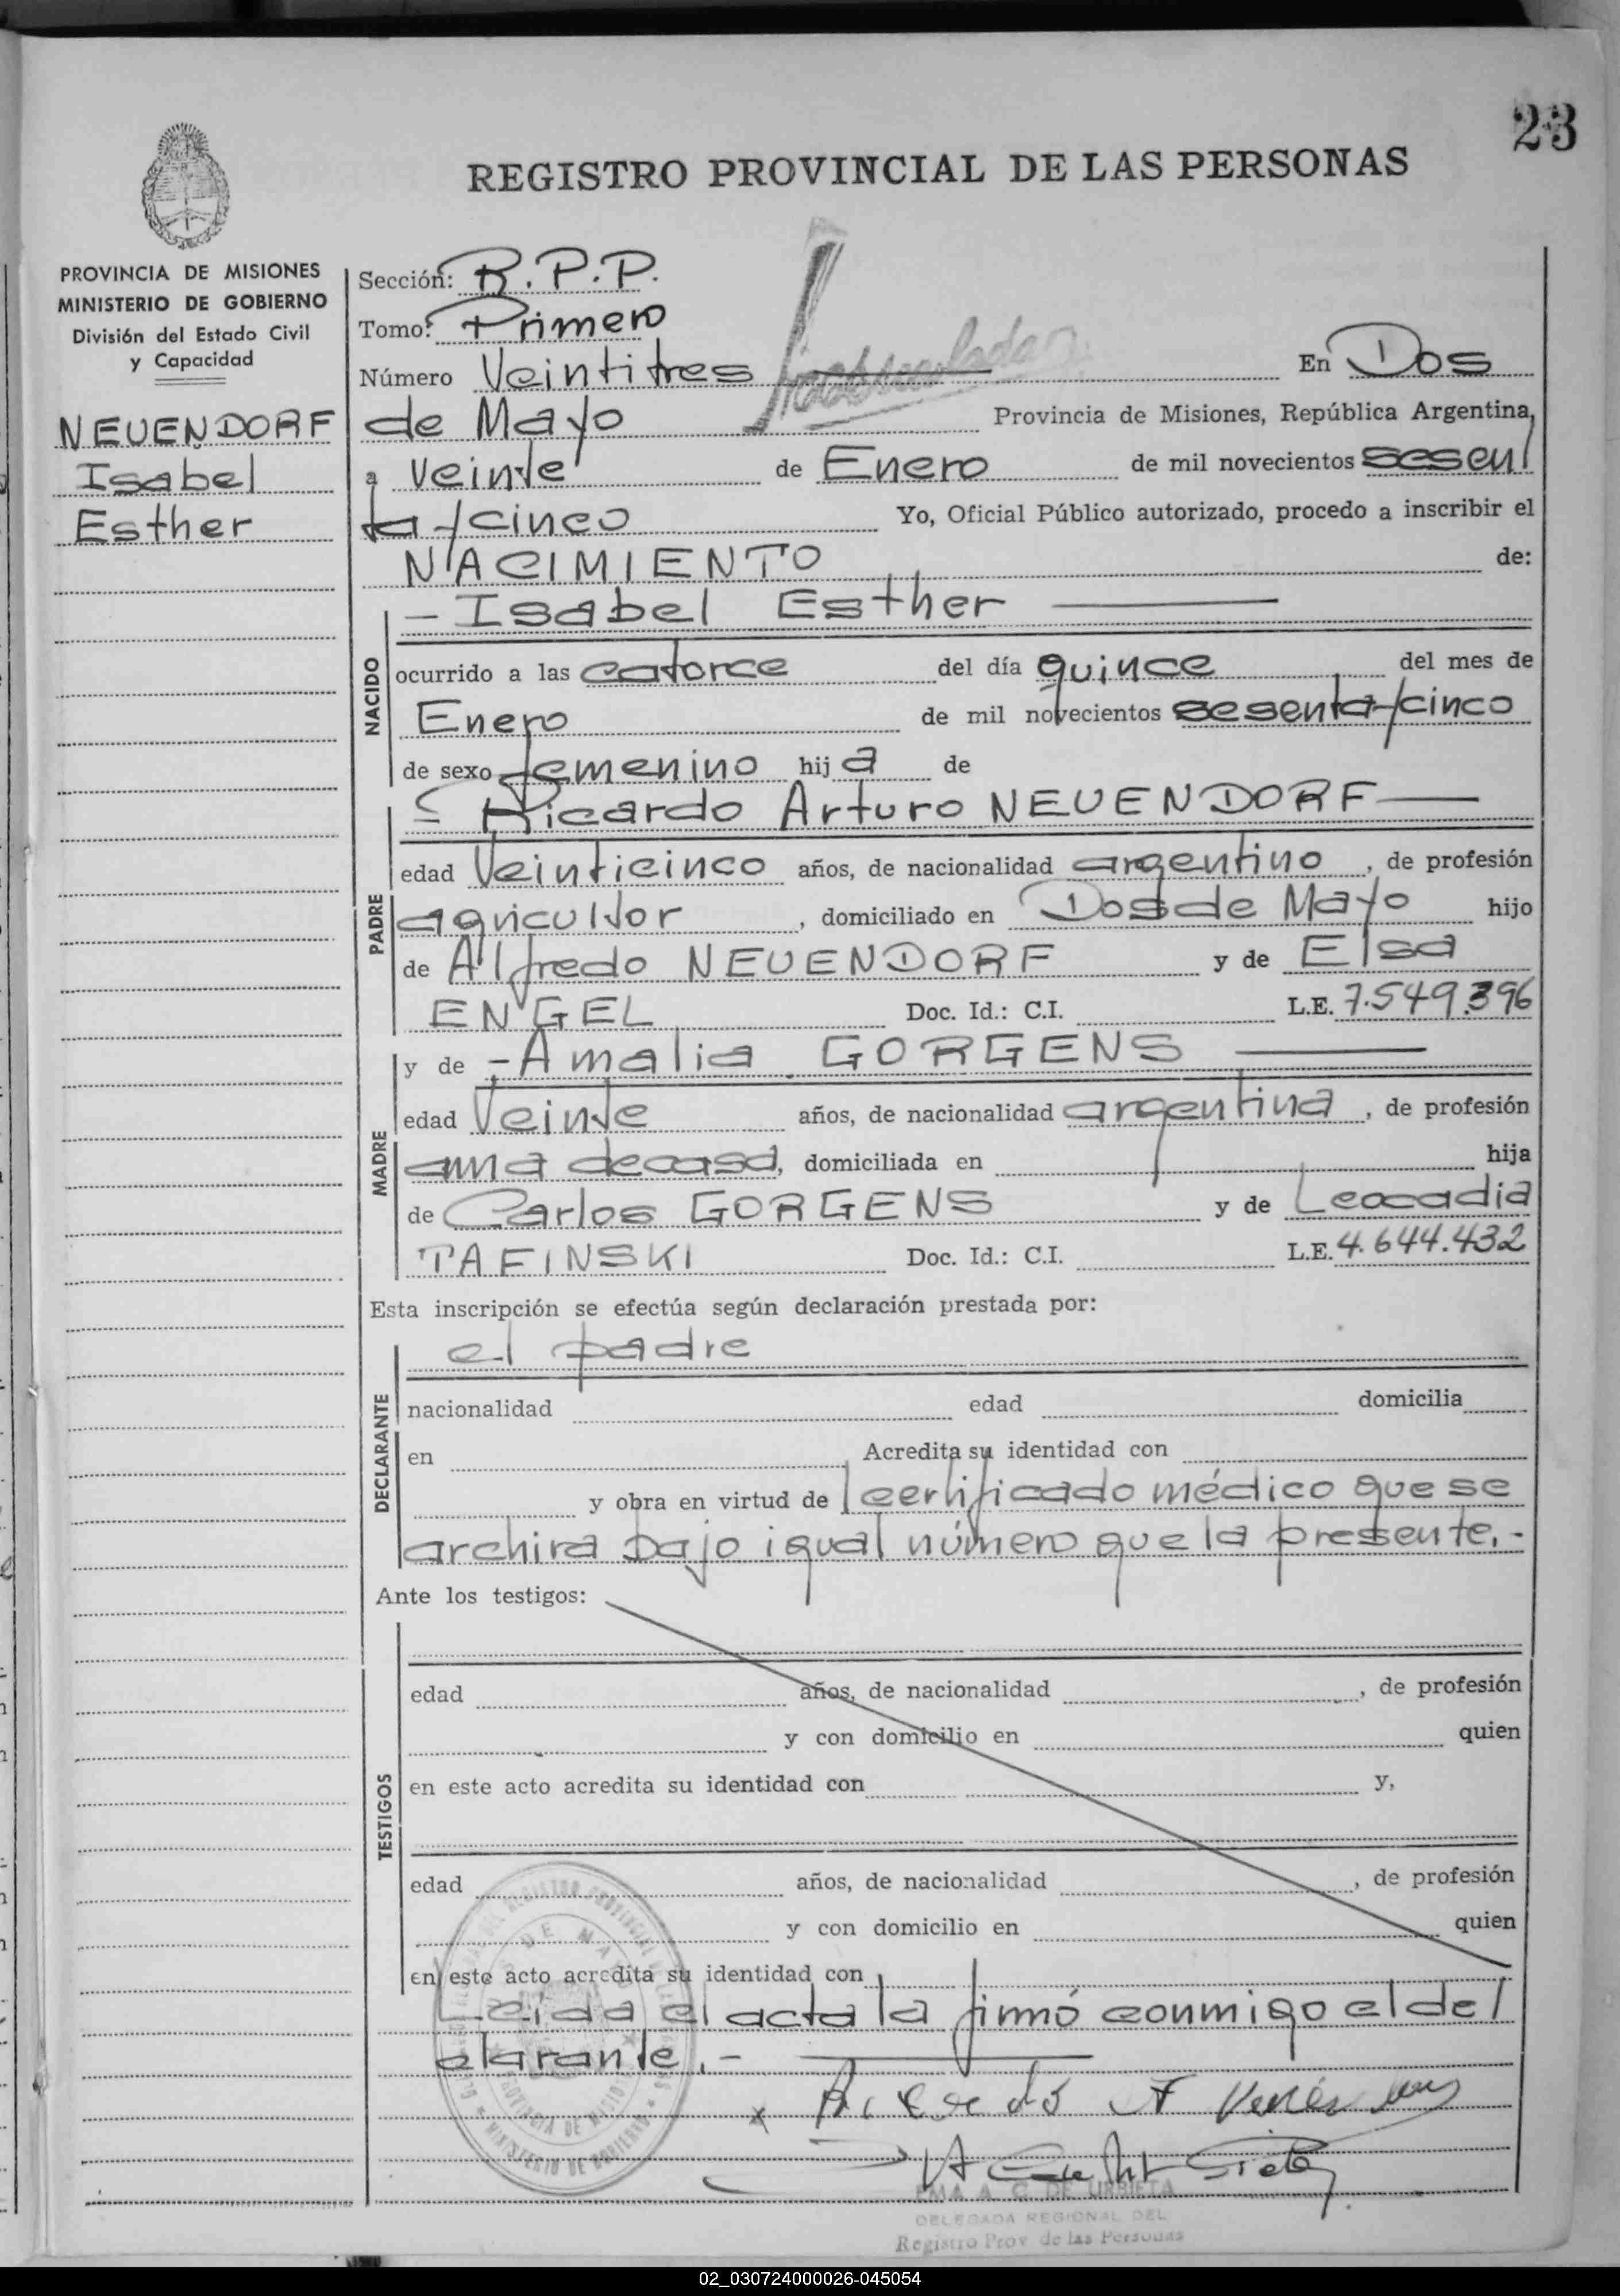 23
REGISTRO PROVINCIAL DE LAS PERSONAS
PROVINCIA DE MISIONES
MINISTERIO DE GOBIERNO
División del Estado Civil
y Capacidad
NEUENDORF
Isabel
Esther
Sección: R.P.P.
Tomo: Primero
Número Veintitres En Dos
de Mayo Provincia de Misiones, República Argentina,
a veinte de Enero de mil novecientos sesen/
ta y cinco Yo, Oficial Público autorizado, procedo a inscribir el
NACIMIENTO de:
- Isabel Esther
NACIDO
ocurrido a las catorce del día quince del mes de
Enero de mil novecientos sesenta y cinco
de sexo femenino hija de
Ricardo Arturo NEUENDORF
PADRE
edad Veinticinco años, de nacionalidad argentino, de profesión
agricultor, domiciliado en Dos de Mayo hijo
de Alfredo NEUENDORF y de Elsa
ENGEL Doc. Id.: C.I. L.E. 7.549.396
y de - Amalia GORGENS
MADRE
edad Veinte años, de nacionalidad argentina, de profesión
ama de casa, domiciliada en hija
de Carlos GORGENS y de Leocadia
TAFINSKI Doc. Id.: C.I. L.E. 4.644.432
Esta inscripción se efectúa según declaración prestada por:
el padre
DECLARANTE
nacionalidad edad domicilia
en Acredita su identidad con
y obra en virtud de certificado médico que se
archiva bajo igual número que la presente.-
Ante los testigos:
TESTIGOS
edad años, de nacionalidad , de profesión
y con domicilio en quien
en este acto acredita su identidad con y,
edad años, de nacionalidad , de profesión
y con domicilio en quien
en este acto acredita su identidad con
Leida el acta la firmó conmigo el de/
clarante.-
PROVINCIA DE MISIONES
MINISTERIO DE GOBIERNO
EMA A. C. DE URBIETA
DELEGADA REGIONAL DEL
Registro Prov. de las Personas
02_030724000026-045054